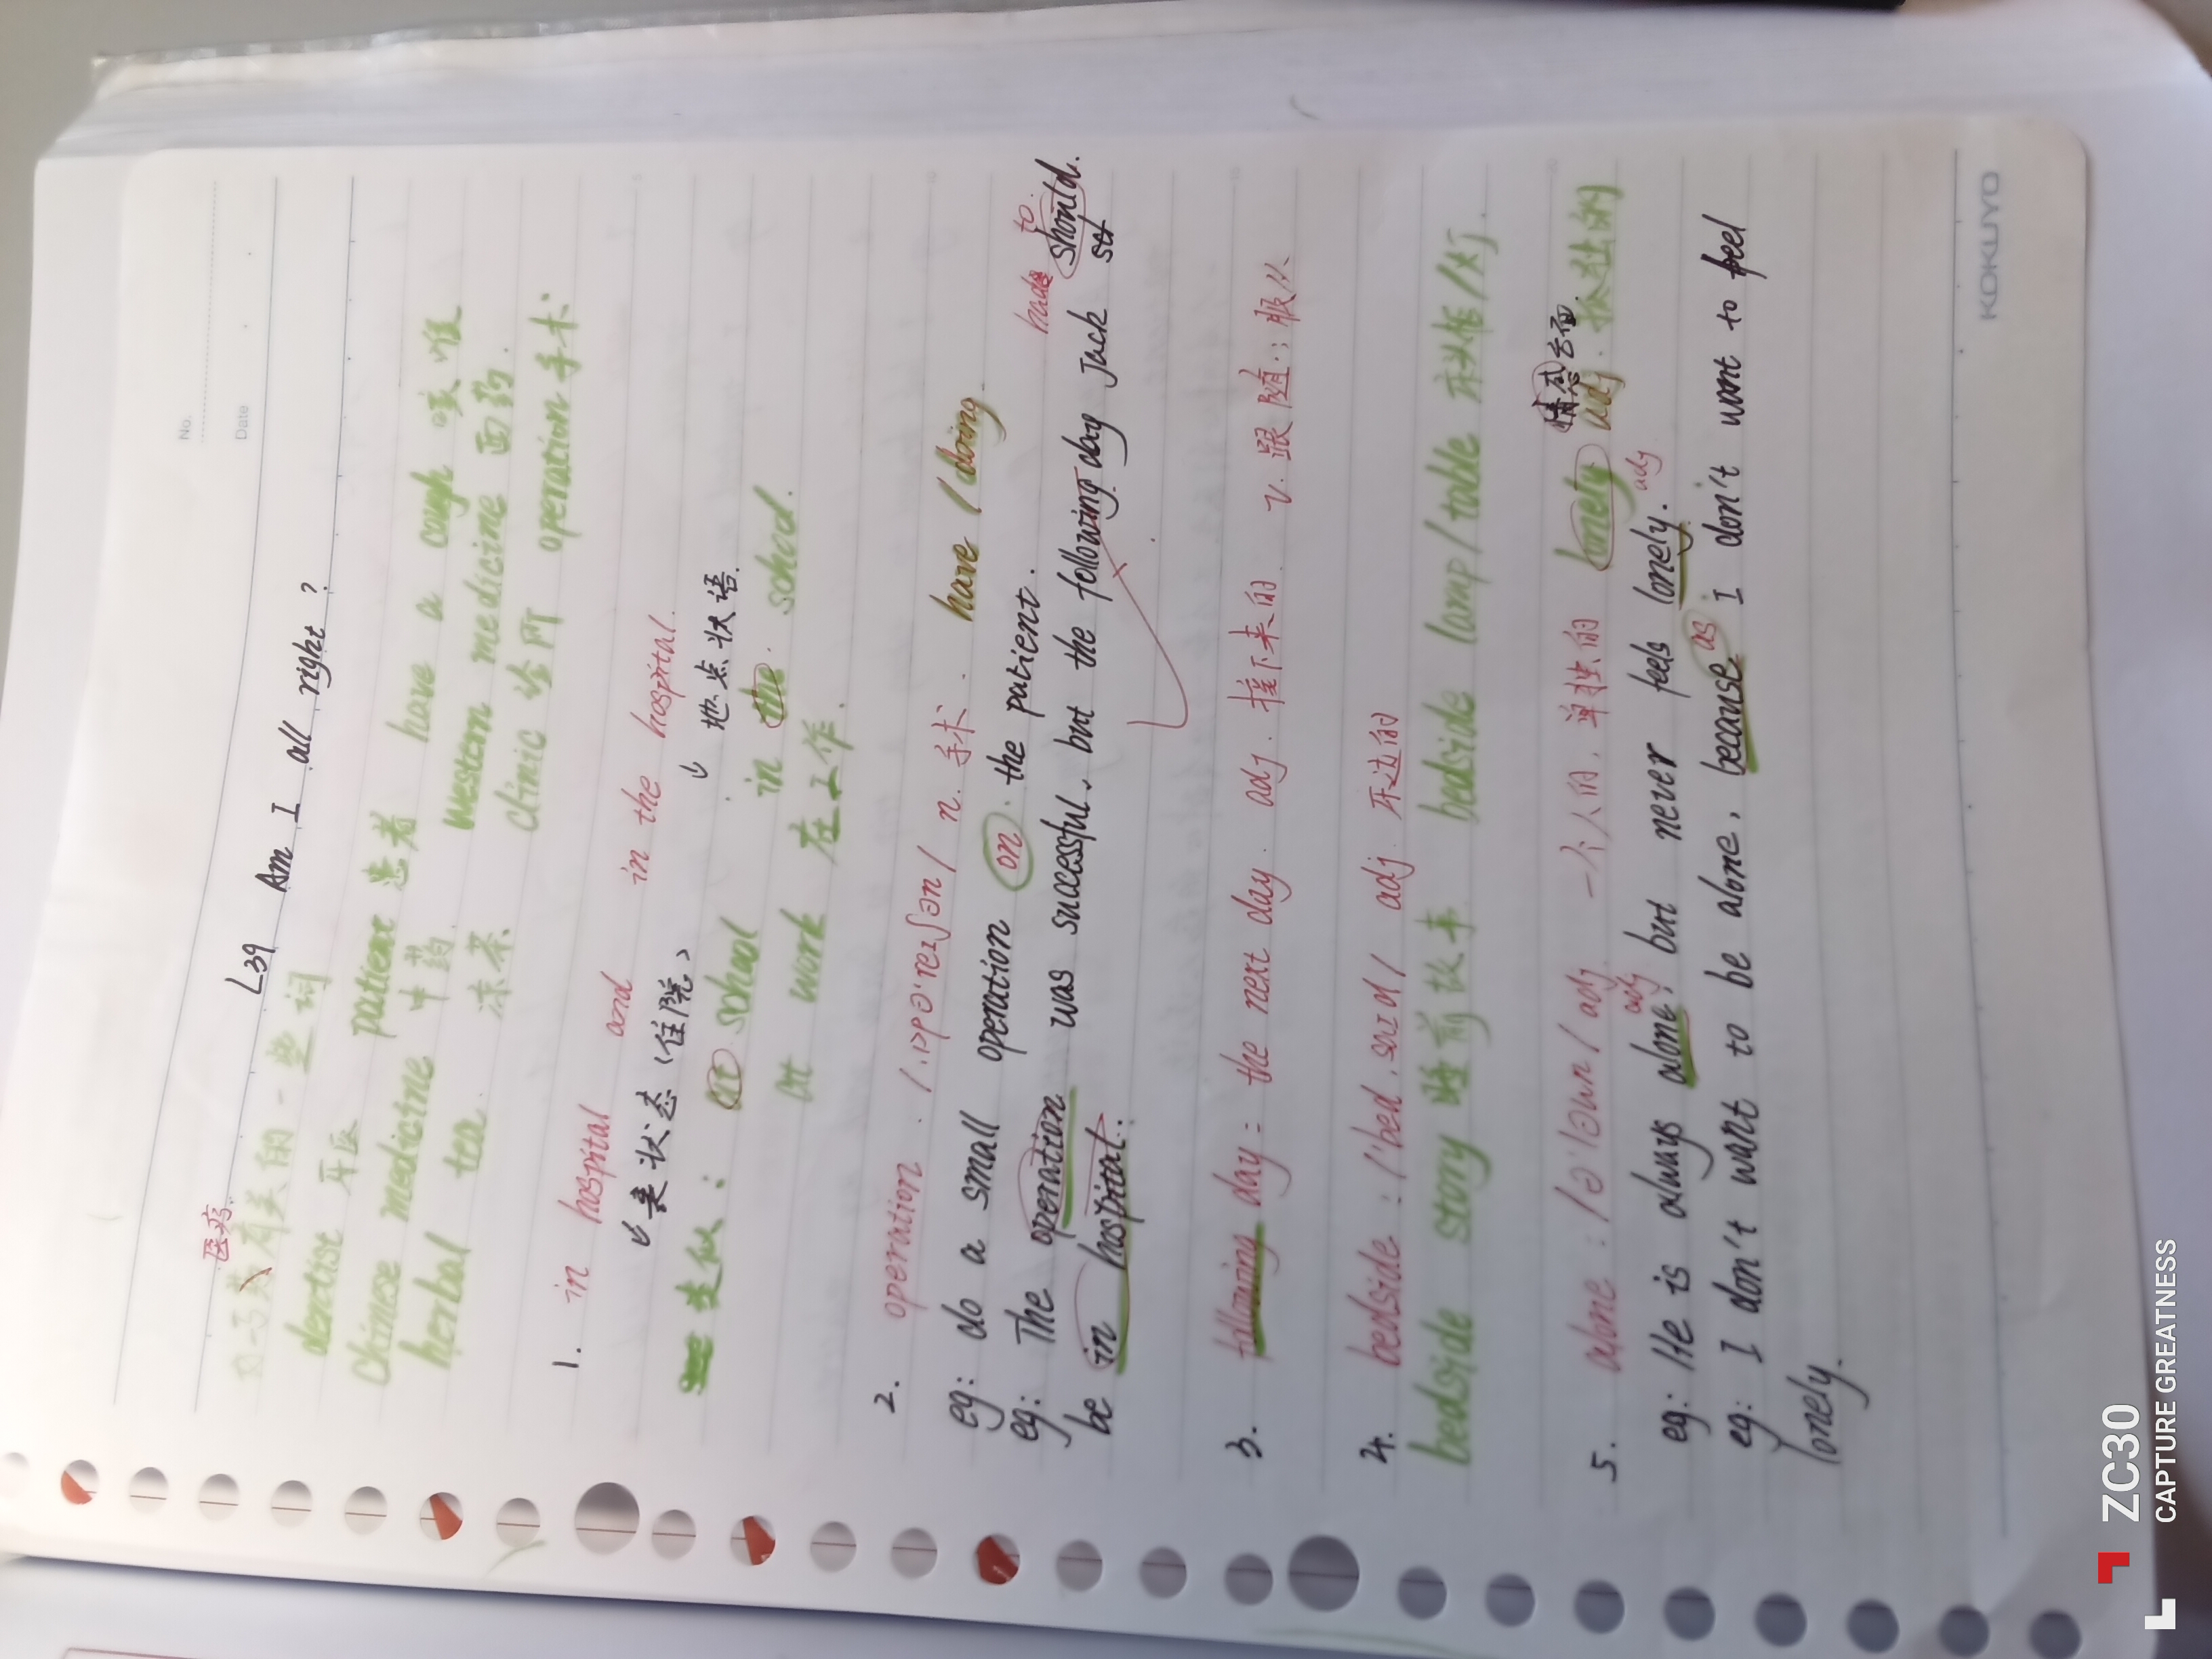 No.
Date
L39 Am I all right ?
医疗
有关的一些词
dentist 牙医 patient 患者 have a cough 咳嗽
Chinese medicine 中药 western medicine 西药.
herbal tea 凉茶 clinic 诊所 operation 手术
1. in hospital and in the hospital.
↓ 表状态（住院） ↓ 地点状语.
类似: at school in the school.
at work 在工作.
2. operation . /ˌɒpəˈreɪʃən/ n. 手术. have / doing
eg: do a small operation on the patient.
had to
eg: The operation was successful, but the following day Jack should.
be in hospital.
3. following day = the next day. adj. 接下来的. v. 跟随; 服从
4. bedside : /ˈbedˌsaɪd/ adj. 床边的
bedside story 睡前故事 bedside lamp / table 床头柜/灯.
情感方面.
5. alone : /əˈləʊn/ adj. 一个人的, 单独的 lonely adj. 孤独的
adj adj
eg: He is always alone, but never feels lonely.
as
eg: I don't want to be alone, because I don't want to feel
lonely.
KOKUYO
ZC30
CAPTURE GREATNESS